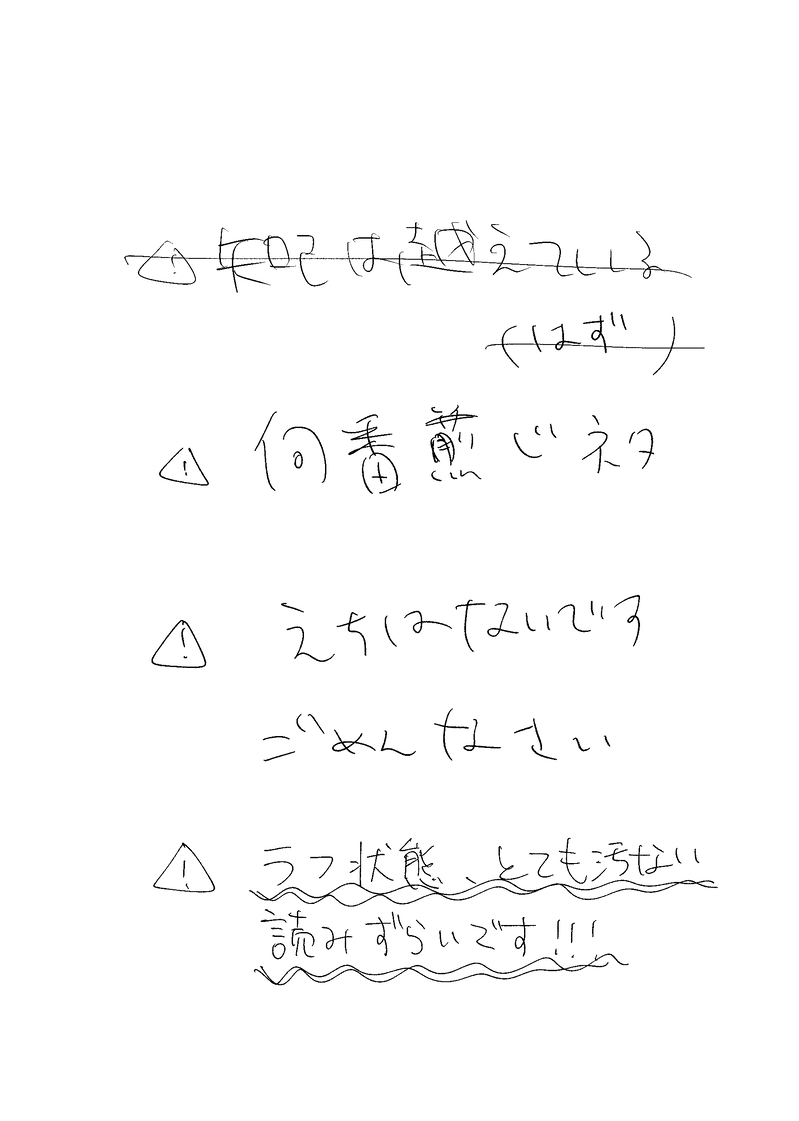 ⚠知己は越えている
(はず)
⚠何番煎じネタ
⚠えちはないです
ごめんなさい
⚠ラフ状態、とても汚ない
読みずらいです!!!